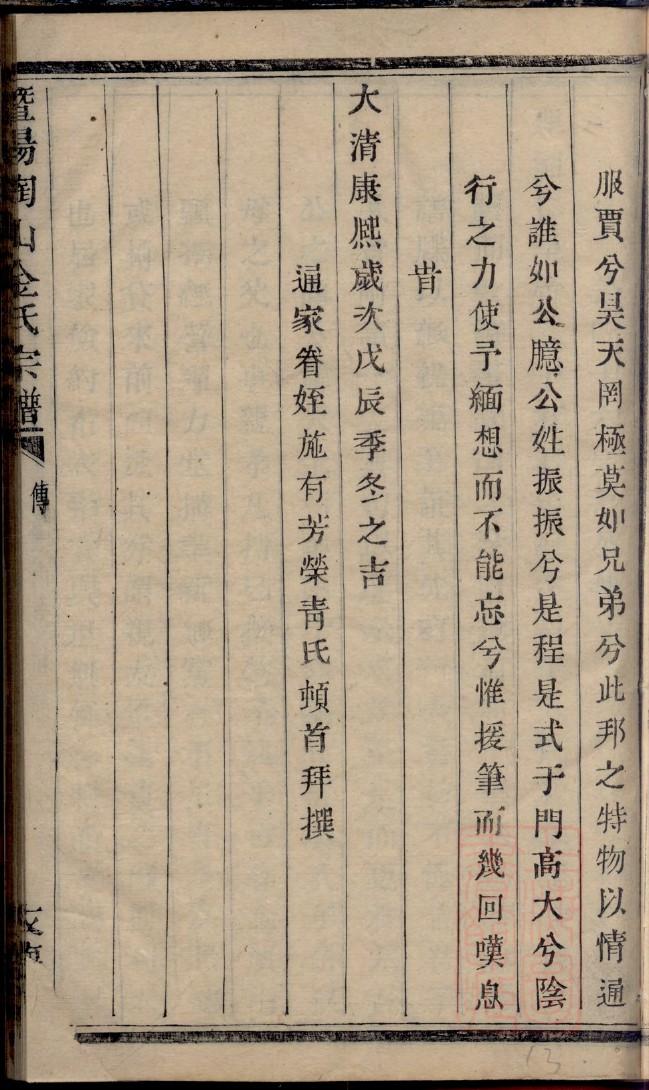 服賈兮昊天罔極莫如兄弟兮此邦之特物以情通
兮誰如公臆公姓振振兮是程是式于門高大兮陰
行之力使予緬想而不能忘兮惟援筆而幾回嘆息
旹
大清康熈歲次戊辰季冬之吉
通家眷姪施有芳榮青氏頓首拜撰
暨陽陶山金氏宗譜
傳
13